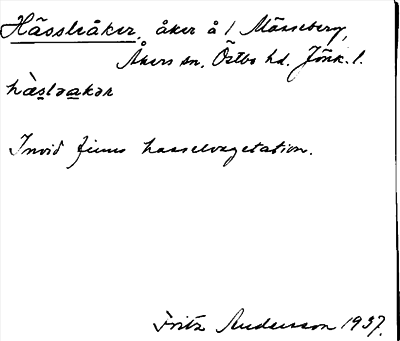 Hässleåker, åker å / Mässeberg,
Åkers sn. Östbo hd. Jönk. l.
hàslɘakɘr
Invid finns hasselvegetation.
Fritz Andersson 1937.